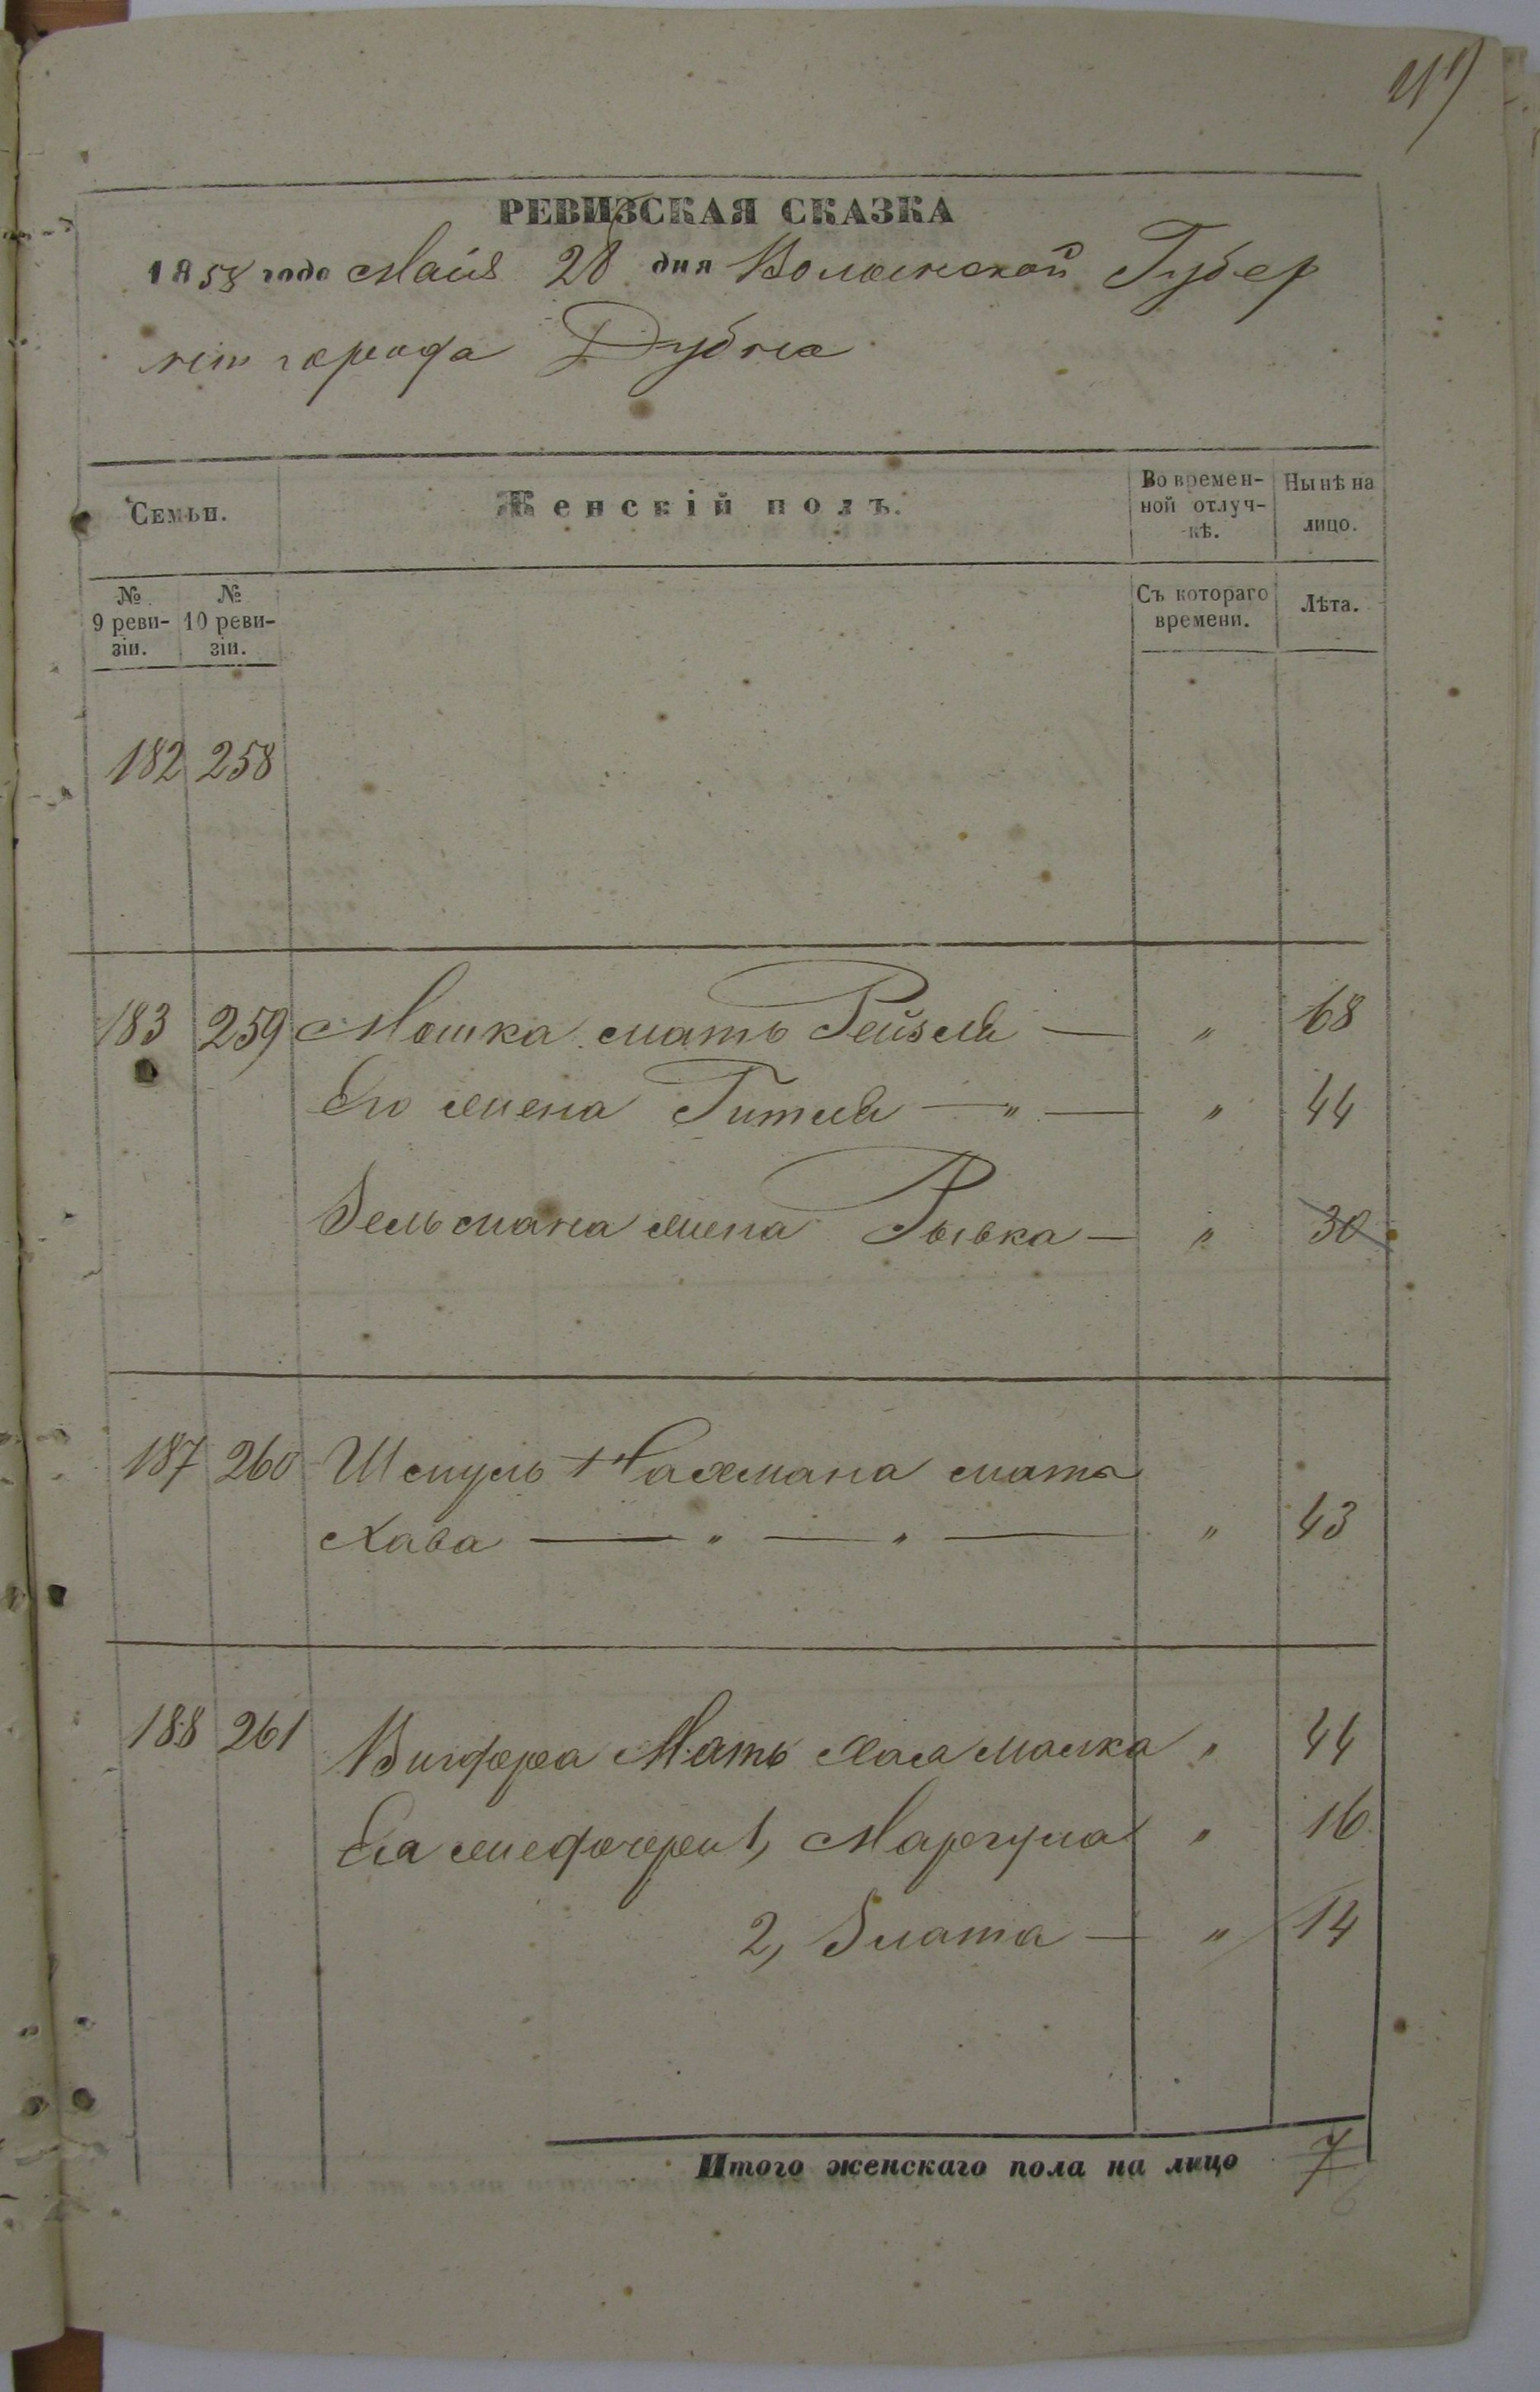 РЕВИЗСКАЯ СКАЗКА
1858 года Маія 28 дня Волынской Губер
ніи города Дубна
Семьи. Женскій полъ. Во времен-ной отлуч-кѣ. Нынѣ на лицо.
№ 9 реви-зіи. № 10 реви-зіи. Съ котораго времени. Лѣта.
182 258
183 259 Мошка мать Рейзля — " 68
Его жена Гитля — " — " 44
Зельмана жена Рывка — " 30
187 260 Шмуль Нахмана мать
Хава — " — " — " 43
188 261 Мать Хая Малка " 44
Ея 1, Маргуля " 16
2, Злата — " 14
Итого женскаго пола на лицо 7
6